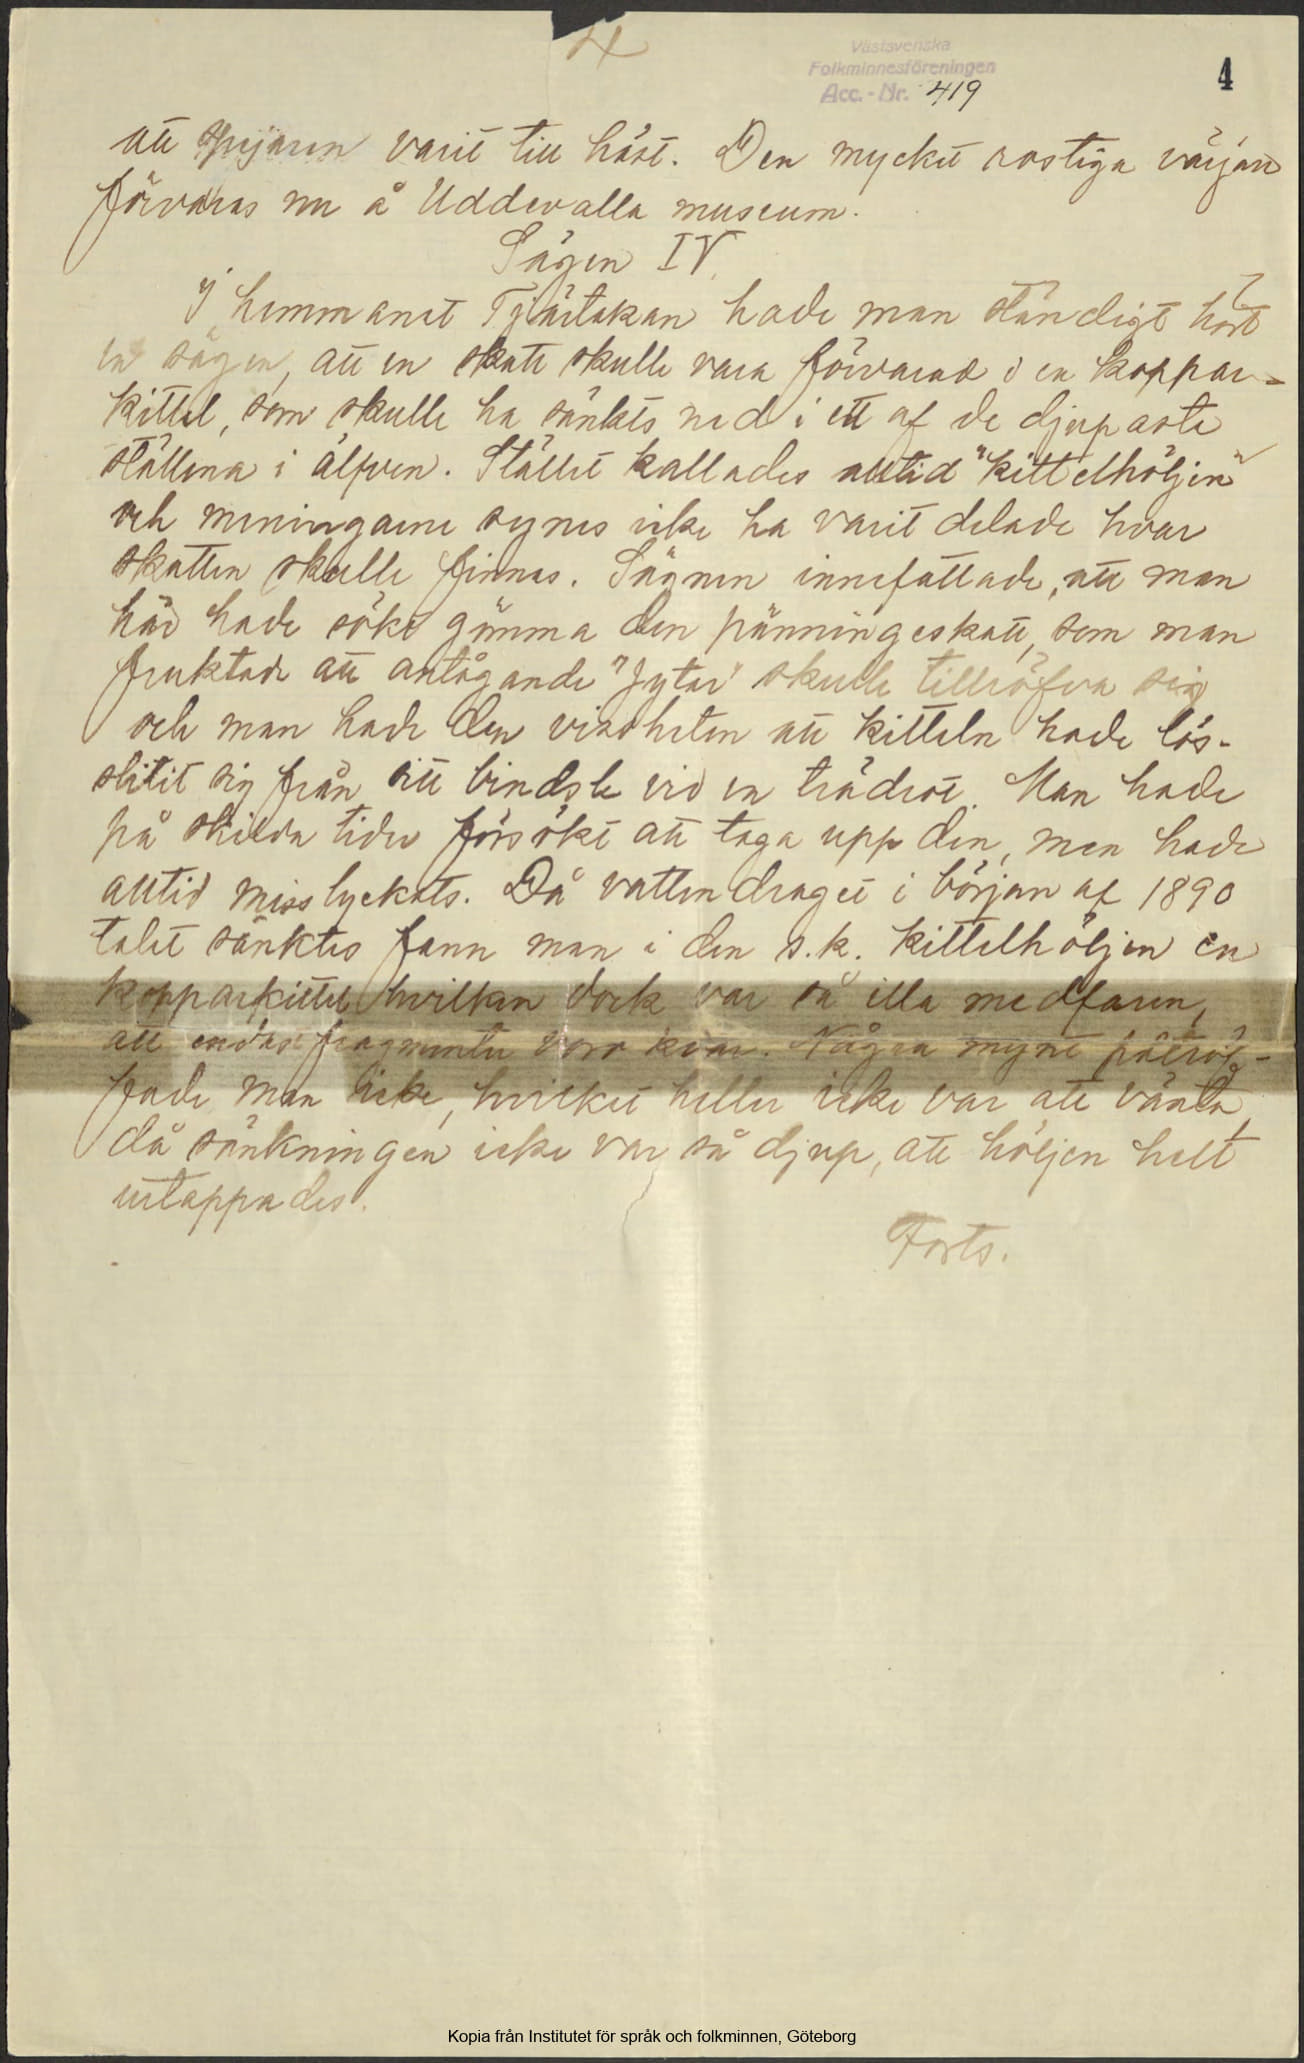 4
Västsvenska
Folkminnesföreningen
Acc.-Nr. 419
4
att spejaren varit till häst. Den mycket rostiga värjan
förvaras nu å Uddevalla museum.
Sägen IV.
I hemmanet Tjärtakan hade man ständigt hört
en sägen, att en skatt skulle vara förvarad i en koppar-
kittel, som skulle ha sänkts ned i ett af de djupaste
ställena i älfven. Stället kallades alltid "kittelhöljen"
och meningarne synes icke ha varit delade hvar
skatten skulle finnas. Sägnen innefattade, att man
här hade sökt gömma den pänningeskatt, som man
fruktade att antågande "Jytar" skulle tillröfva sig
och man hade den vissheten att kitteln hade lös-
slitit sig från sitt bindsle vid en trädrot. Man hade
på skilda tider försökt att taga upp den, men hade
alltid misslyckats. Då vattendraget i början af 1890
talet sänktes fann man i den s.k. kittelhöljen en
kopparkittel hvilken dock var så illa medfaren,
att endast fragmenter voro kvar. Några mynt påträf-
fade man icke, hvilket heller icke var att vänta,
då sänkningen icke var så djup, att höljen helt
urtappades.
Forts.
Kopia från Institutet för språk och folkminnen, Göteborg